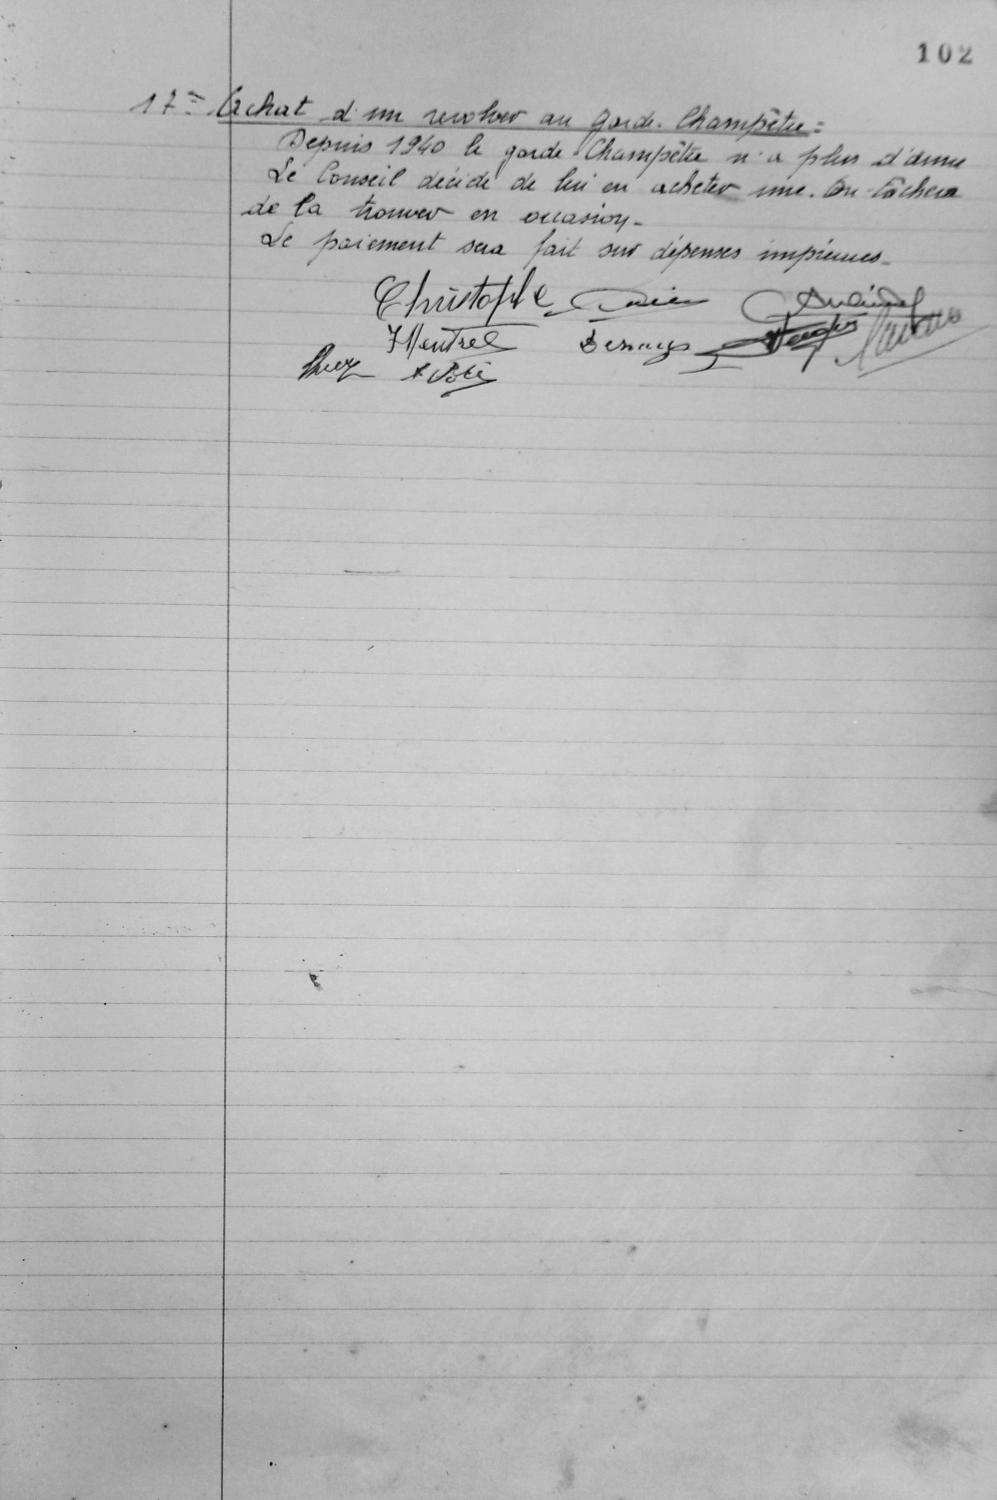 102
17= Achat d'un revolver au garde-Champêtre=
Depuis 1940 le garde-Champêtre n'a plus d'arme
Le Conseil décide de lui en acheter une. On tâchera
de la trouver en occasion-
Le paiement sera fait sur dépenses imprévues-
Christophe